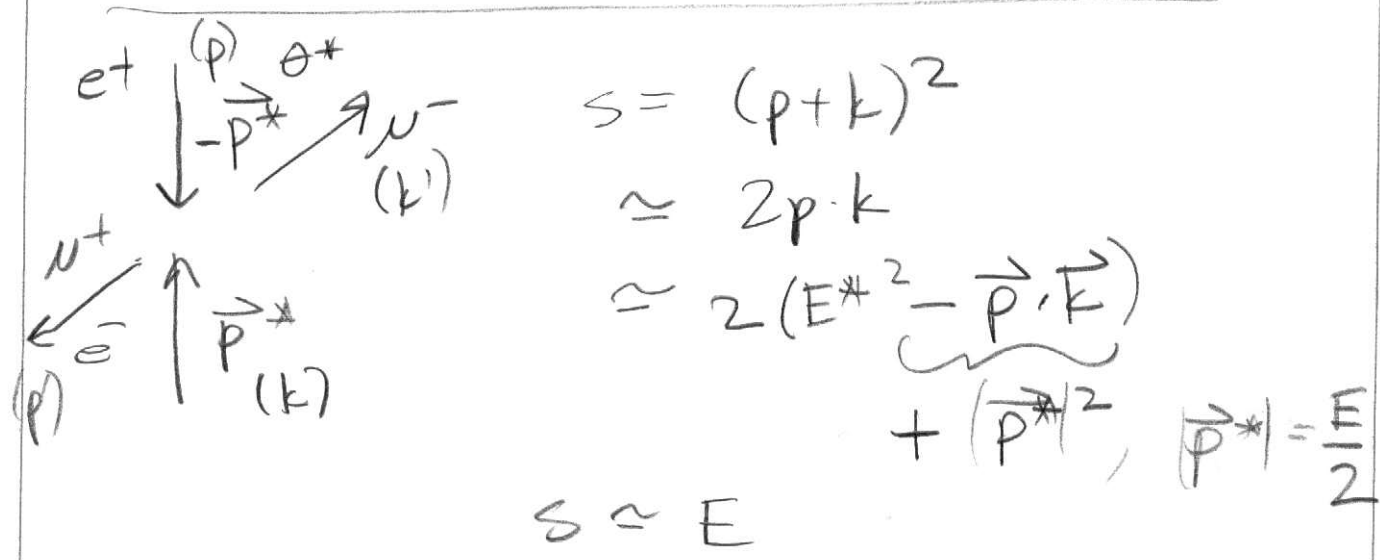 e⁺ (p) θ*
-p⃗*
μ⁻
(k')
μ⁺
e⁻
(p')
p⃗*
(k)
s = (p+k)²
≃ 2p·k
≃ 2(E*² - p⃗·k⃗)
+ |p⃗*|², |p⃗*| = E/2
s ≃ E